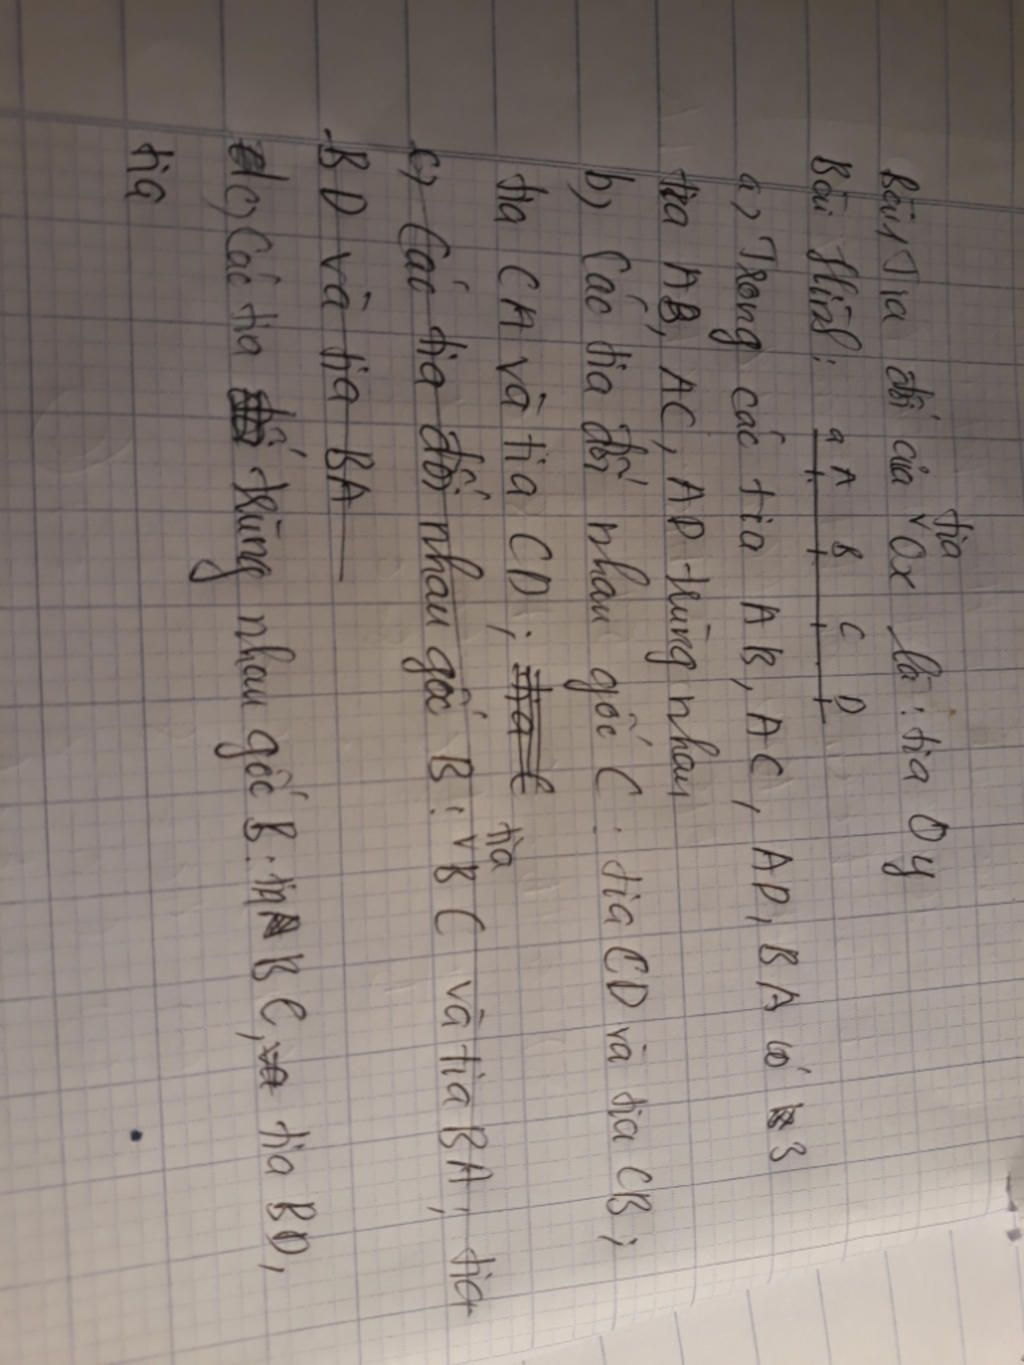 Bài 1 Tia đối của tia Ox là : tia Oy
Bài Hình:
a A B C D
a) Trong các tia AB, AC, AD, BA có 3
tia AB, AC, AD trùng nhau
b) Các tia đối nhau gốc C : tia CD và tia CB ;
tia CA và tia CD ;
c) Các tia đối nhau gốc B : tia BC và tia BA ; tia
BD và tia BA
c) Các tia trùng nhau gốc B : BC, tia BD,
tia